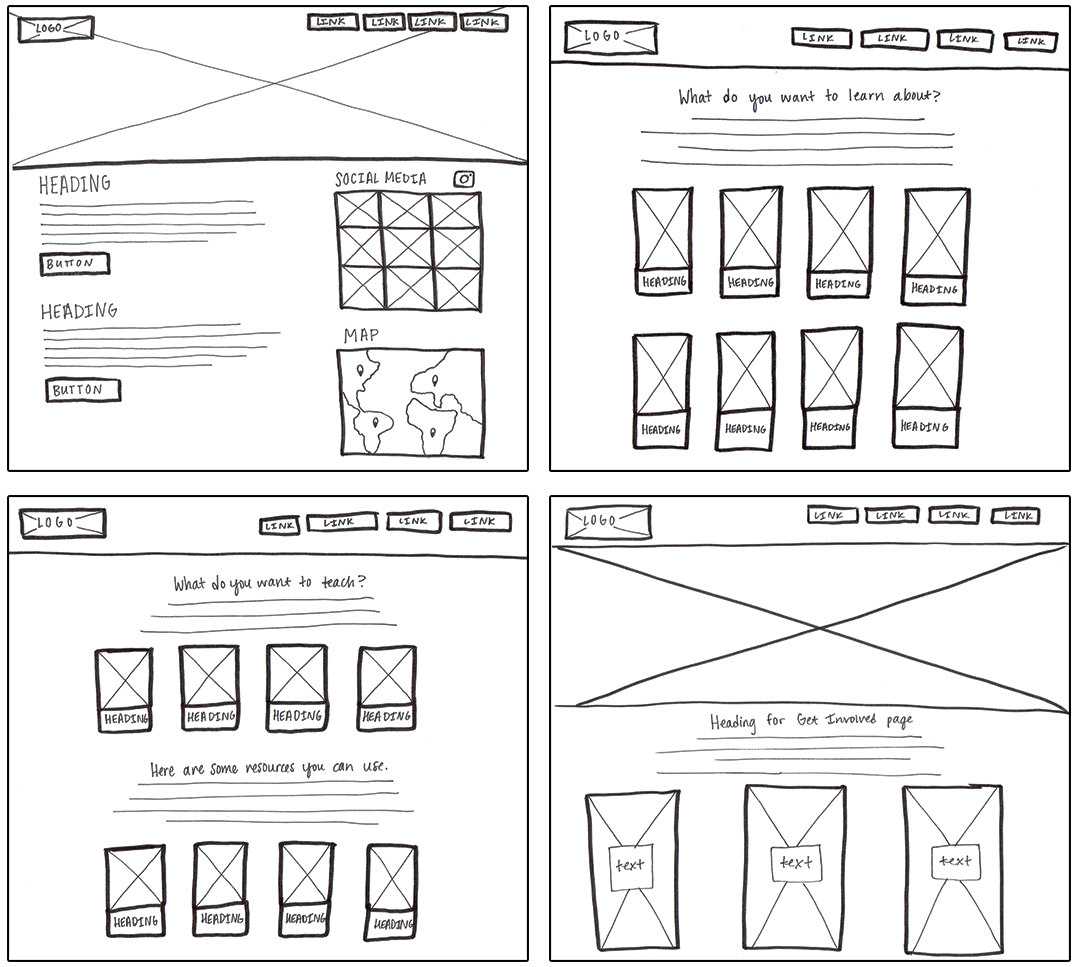 LOGO LINK LINK LINK LINK
HEADING
BUTTON
HEADING
BUTTON
SOCIAL MEDIA
MAP
LOGO LINK LINK LINK LINK
What do you want to learn about?
HEADING HEADING HEADING HEADING
HEADING HEADING HEADING HEADING
LOGO LINK LINK LINK LINK
What do you want to teach?
HEADING HEADING HEADING HEADING
Here are some resources you can use.
HEADING HEADING HEADING HEADING
LOGO LINK LINK LINK LINK
Heading for Get Involved page
text text text